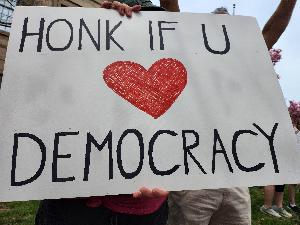 HONK IF U
❤
DEMOCRACY